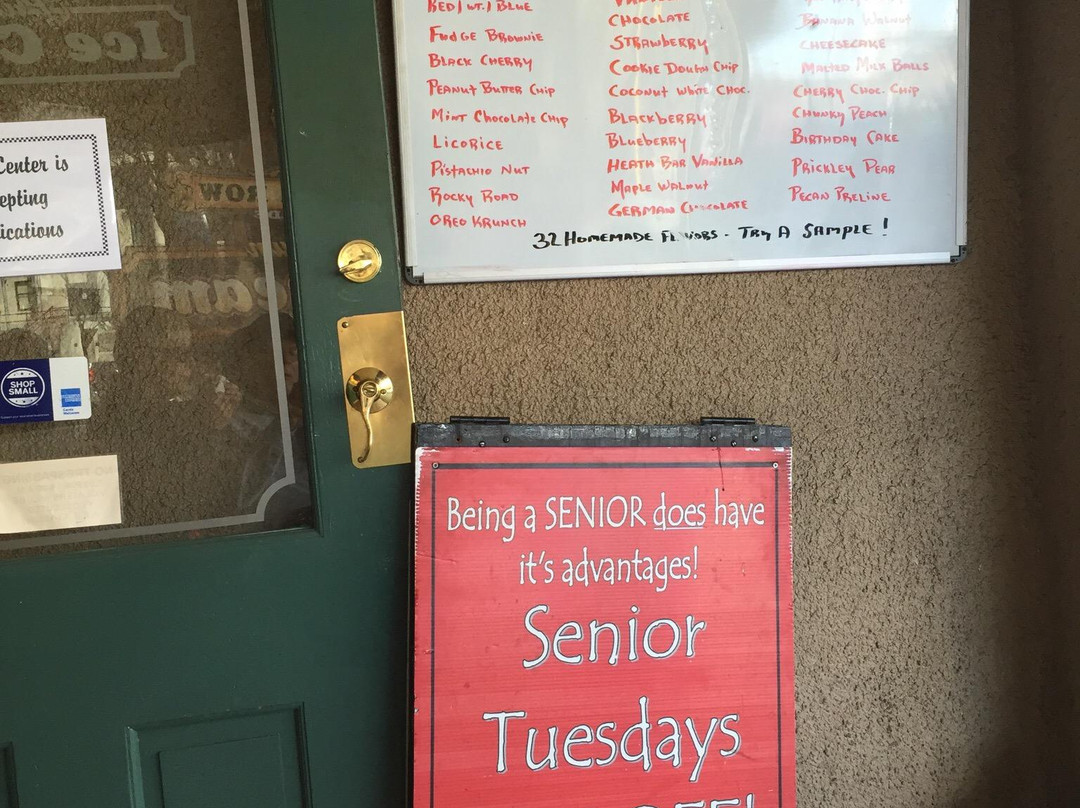 Ice C
Center is
epting
ications
ROW
eam
SHOP
SMALL
RED/WT./BLUE
FUDGE BROWNIE
BLACK CHERRY
PEANUT BUTTER CHIP
MINT CHOCOLATE CHIP
LICORICE
PISTACHIO NUT
ROCKY ROAD
OREO KRUNCH
CHOCOLATE
STRAWBERRY
COOKIE DOUGH CHIP
COCONUT WHITE CHOC.
BLACKBERRY
BLUEBERRY
HEATH BAR VANILLA
MAPLE WALNUT
GERMAN CHOCOLATE
BANANA WALNUT
CHEESECAKE
MALTED MILK BALLS
CHERRY CHOC. CHIP
CHUNKY PEACH
BIRTHDAY CAKE
PRICKLEY PEAR
PECAN PRELINE
32 HOMEMADE FLAVORS - TRY A SAMPLE!
Being a SENIOR does have
it's advantages!
Senior
Tuesdays